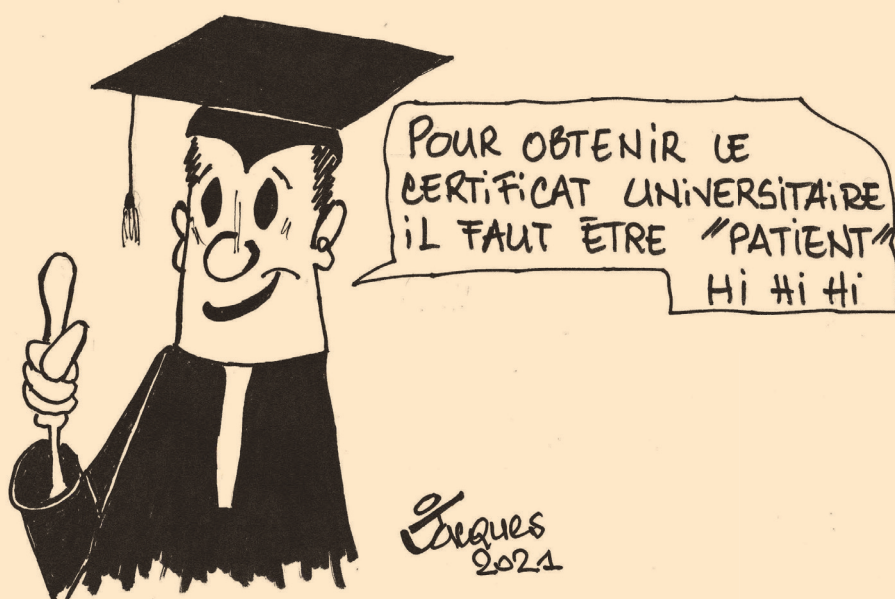 POUR OBTENIR LE
CERTIFICAT UNIVERSITAIRE
IL FAUT ÊTRE "PATIENT"
HI HI HI
Jacques
2021